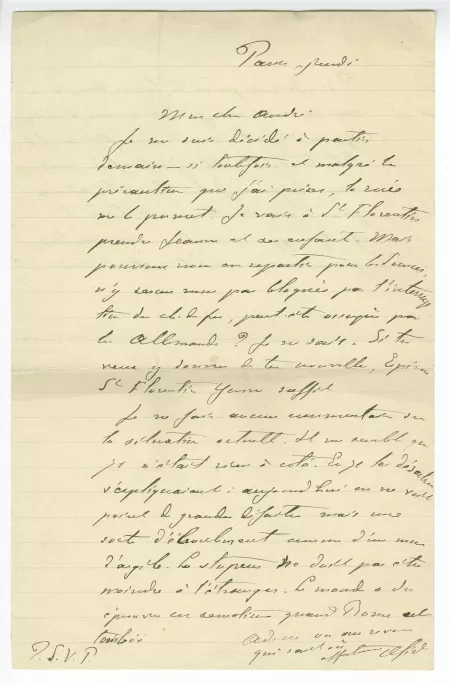 Paris jeudi
Mon cher André
Je me suis décidé à partir
demain – si toutefois et malgré la
précaution que j'ai prise, la ruée
me le permet. Je vais à St Florentin
prendre Jeanne et ses enfants. Mais
pourrons nous en repartir pour les
n'y serons nous pas bloqués par l'interrup
tion du ch. de fer, peut-être occupés par
les Allemands ? Je ne sais. Si tu
veux y donner de tes nouvelles,
St Florentin Yonne suffit
Je ne fais aucun commentaire sur
la situation actuelle. Il me semble que
70 n'était rien à côté. En 70 les désastres
s'expliquaient ; aujourd'hui on ne voit
point de grandes défaites mais une
sorte d'éboulement comme d'un mur
d'argile. La stupeur ne doit pas être
moindre à l'étranger. Le monde a dû
éprouver ces émotions quand Rome est
tombée
adieu ou au revoir
qui sait où
P.S.V.P